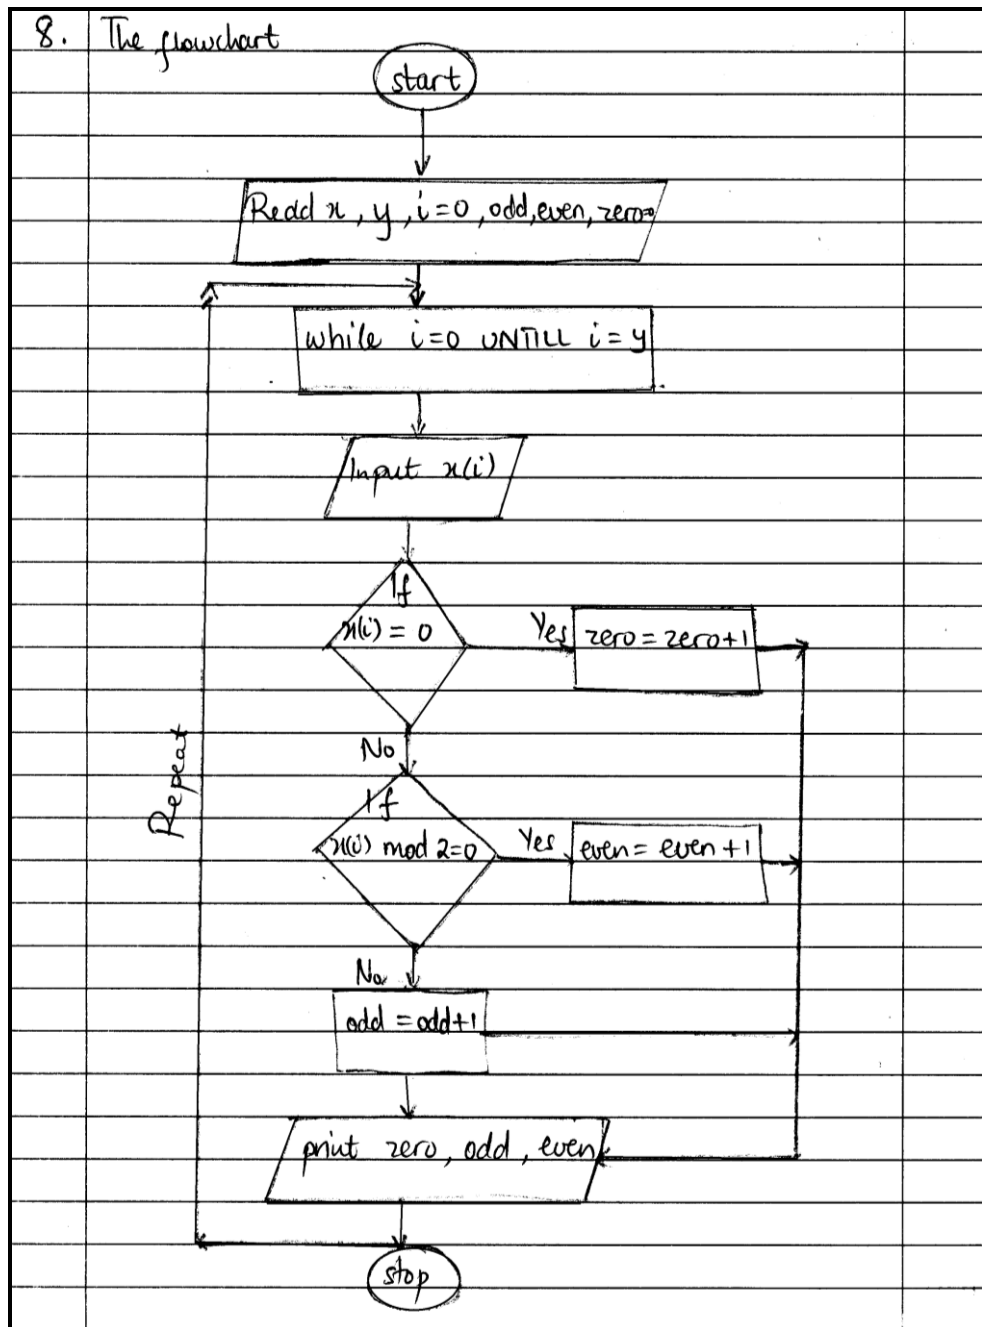 8. The flowchart
start
Read x, y, i=0, odd, even, zero=0
while i=0 UNTILL i=y
Input x(i)
If
x(i) = 0
Yes
zero = zero+1
No
If
x(i) mod 2=0
Yes
even = even +1
Repeat
No
odd = odd+1
print zero, odd, even
stop